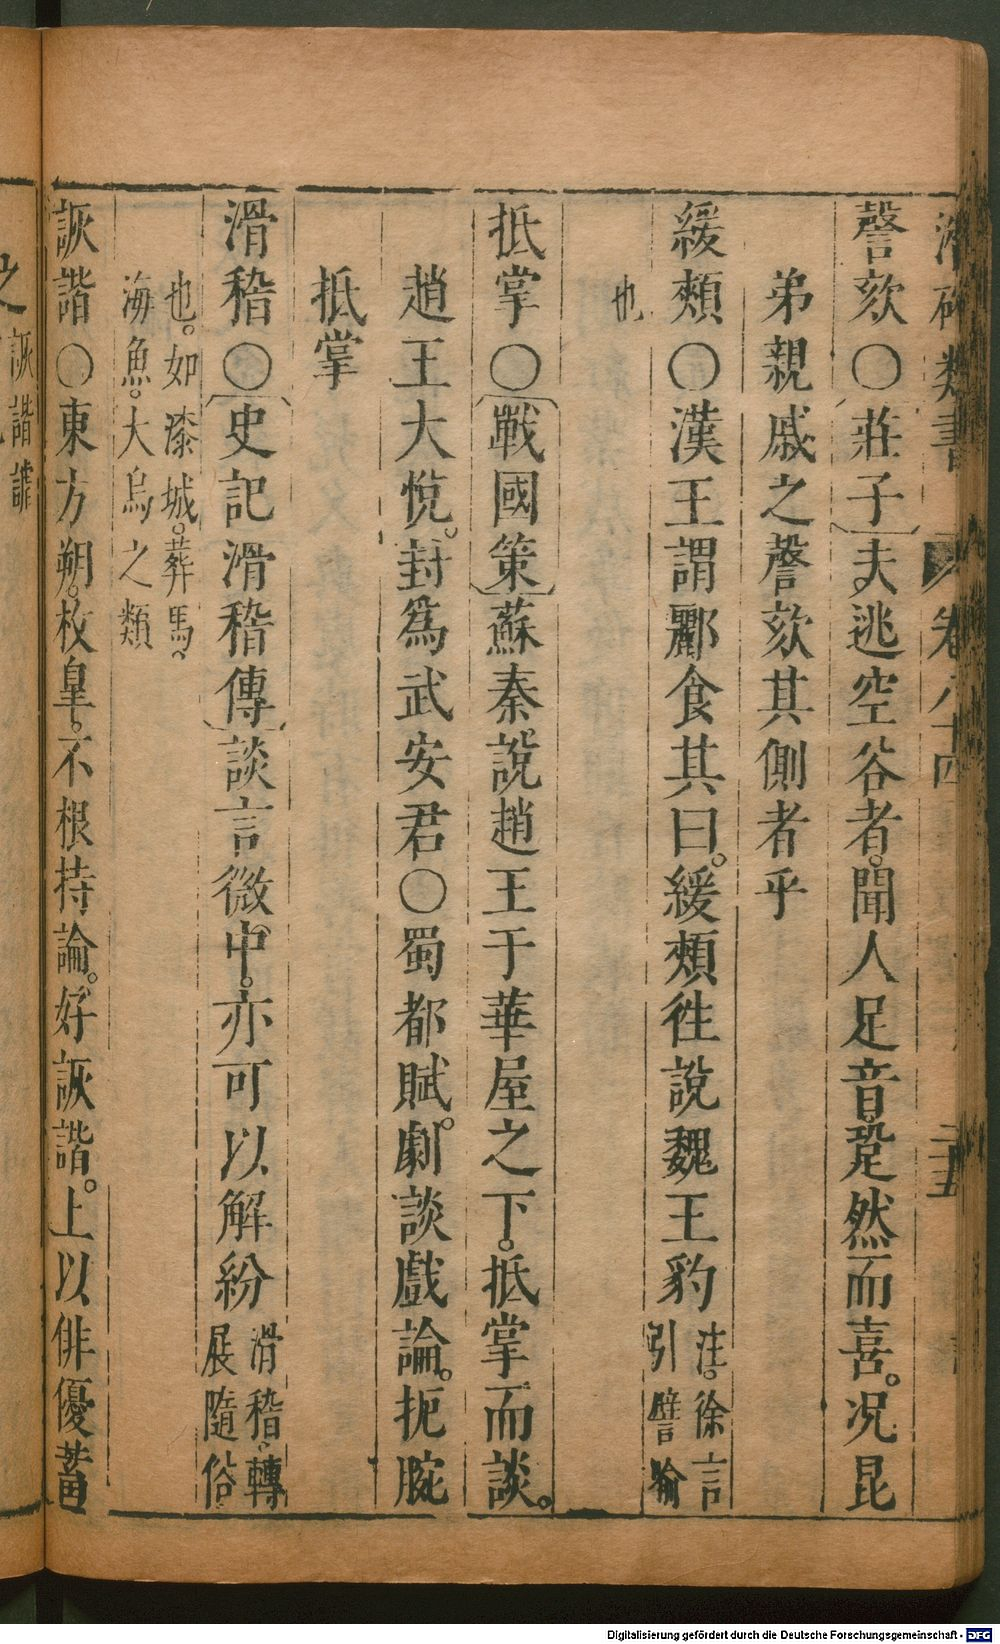 類書 卷八十四 二十五
謦欬〇莊子夫逃空谷者。聞人足音跫然而喜。况昆
弟親戚之謦欬其側者乎
緩頰〇漢王謂酈食其曰。緩頰徃說魏王豹 注。徐言
引譬喻
也
抵掌〇戰國策蘇秦說趙王于華屋之下。抵掌而談。
趙王大悅。封爲武安君〇蜀都賦。劇談戲論。扼腕
抵掌
滑稽〇史記滑稽傳談言微中。亦可以解紛 滑稽。轉
展隨俗
也。如漆城。葬馬。
海魚。大鳥之類
詼諧〇東方朔。枚皇。不根持論。好詼諧。上以俳優蓄
之 詼諧謔
Digitalisierung gefördert durch die Deutsche Forschungsgemeinschaft - DFG